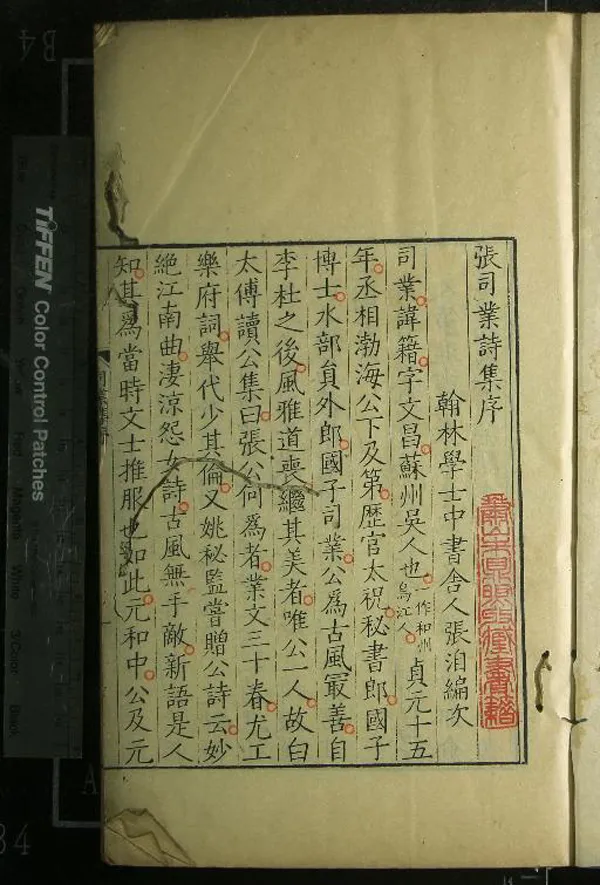 張司業詩集序
翰林學士中書舍人張洎編次
司業諱籍字文昌蘇州吳人也一作和州烏江人貞元十五
年丞相渤海公下及第歷官太祝秘書郎國子
博士水部員外郎國子司業公為古風冣善自
李杜之後風雅道喪繼其美者唯公一人故白
太傅讀公集曰張公何為者業文三十春尤工
樂府詞舉代少其倫又姚秘監嘗贈公詩云妙
絕江南曲淒涼怨女詩古風無手敵新語是人
知其為當時文士推服也如此元和中公及元
TIFFEN Color Control Patches
B4